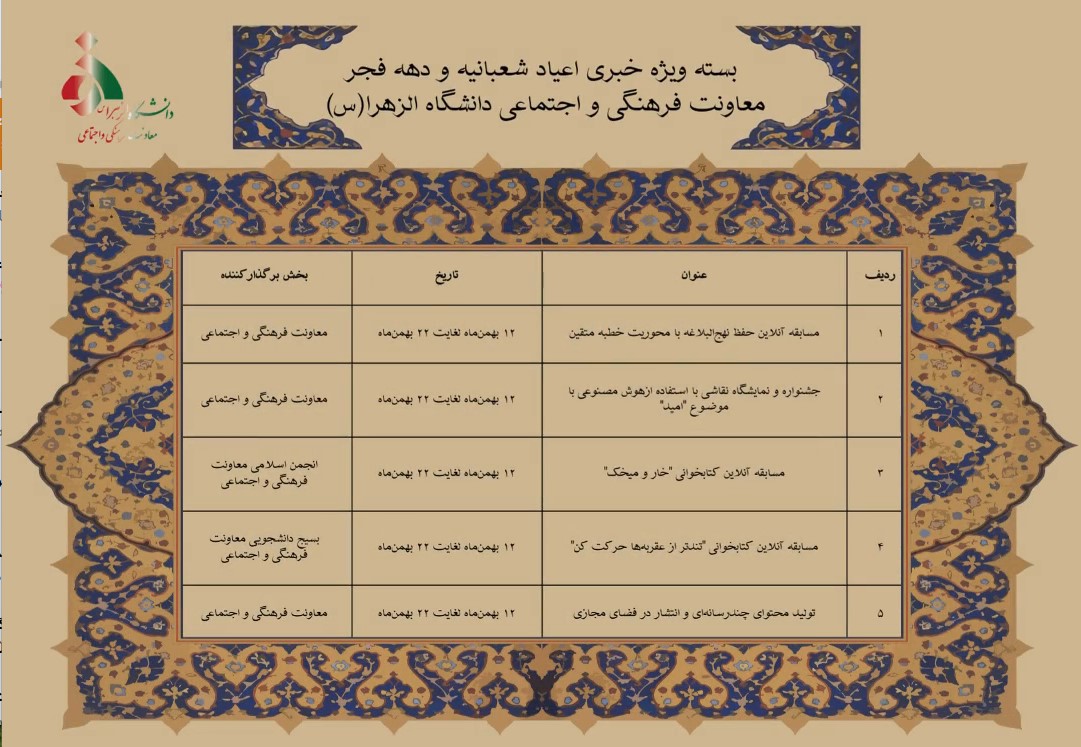 بسته ویژه خبری اعیاد شعبانیه و دهه فجر
معاونت فرهنگی و اجتماعی دانشگاه الزهرا(س)
ردیف	عنوان	تاریخ	بخش برگذارکننده
۱	مسابقه آنلاین حفظ نهج‌البلاغه با محوریت خطبه متقین	۱۲ بهمن‌ماه لغایت ۲۲ بهمن‌ماه	معاونت فرهنگی و اجتماعی
۲	جشنواره و نمایشگاه نقاشی با استفاده ازهوش مصنوعی با
موضوع "امید"	۱۲ بهمن‌ماه لغایت ۲۲ بهمن‌ماه	معاونت فرهنگی و اجتماعی
۳	مسابقه آنلاین کتابخوانی "خار و میخک"	۱۲ بهمن‌ماه لغایت ۲۲ بهمن‌ماه	انجمن اسلامی معاونت
فرهنگی و اجتماعی
۴	مسابقه آنلاین کتابخوانی "تندتر از عقربه‌ها حرکت کن"	۱۲ بهمن‌ماه لغایت ۲۲ بهمن‌ماه	بسیج دانشجویی معاونت
فرهنگی و اجتماعی
۵	تولید محتوای چندرسانه‌ای و انتشار در فضای مجازی	۱۲ بهمن‌ماه لغایت ۲۲ بهمن‌ماه	معاونت فرهنگی و اجتماعی